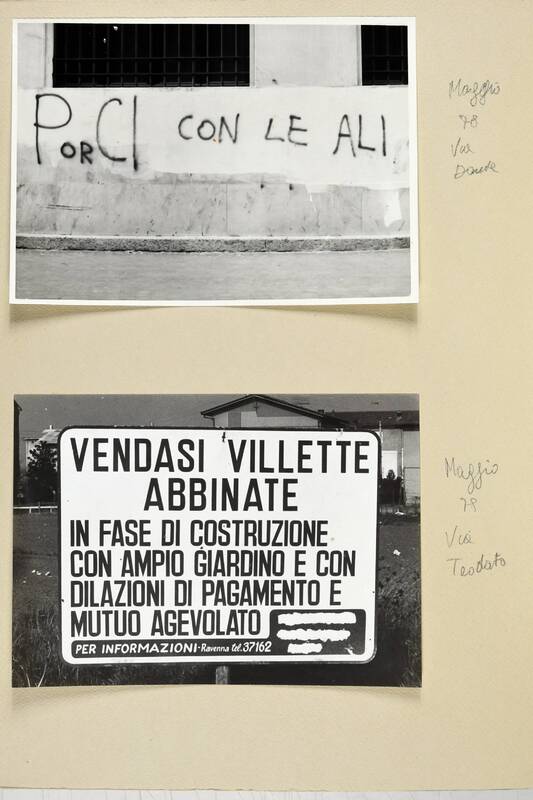 PorCI CON LE ALI
Maggio
78
Via
Dante
VENDASI VILLETTE
ABBINATE
IN FASE DI COSTRUZIONE
CON AMPIO GIARDINO E CON
DILAZIONI DI PAGAMENTO E
MUTUO AGEVOLATO
PER INFORMAZIONI-Ravenna tel.37162
Maggio
78
Via
Teodato